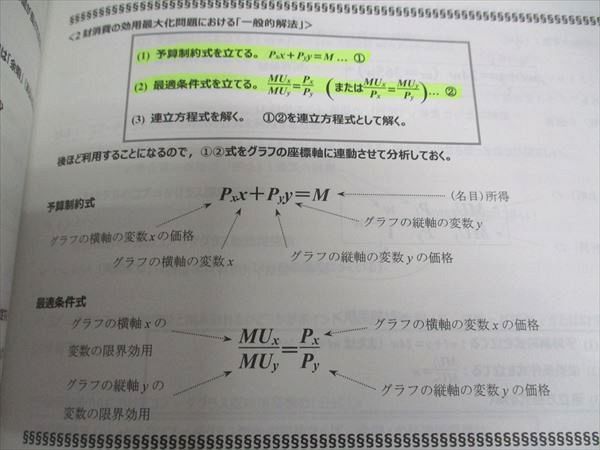 <2財消費の効用最大化問題における「一般的解法」>
(1) 予算制約式を立てる。 Pₓx+Pᵧy=M … ①
(2) 最適条件式を立てる。 MUₓ/MUᵧ=Pₓ/Pᵧ (または MUₓ/Pₓ=MUᵧ/Pᵧ)… ②
(3) 連立方程式を解く。 ①②を連立方程式として解く。
後ほど利用することになるので，①②式をグラフの座標軸に連動させて分析しておく。
予算制約式
Pₓx+Pᵧy=M
(名目)所得
グラフの横軸の変数xの価格
グラフの縦軸の変数y
グラフの横軸の変数x
グラフの縦軸の変数yの価格
最適条件式
グラフの横軸xの
変数の限界効用
グラフの横軸の変数xの価格
MUₓ/MUᵧ=Pₓ/Pᵧ
グラフの縦軸yの
変数の限界効用
グラフの縦軸の変数yの価格